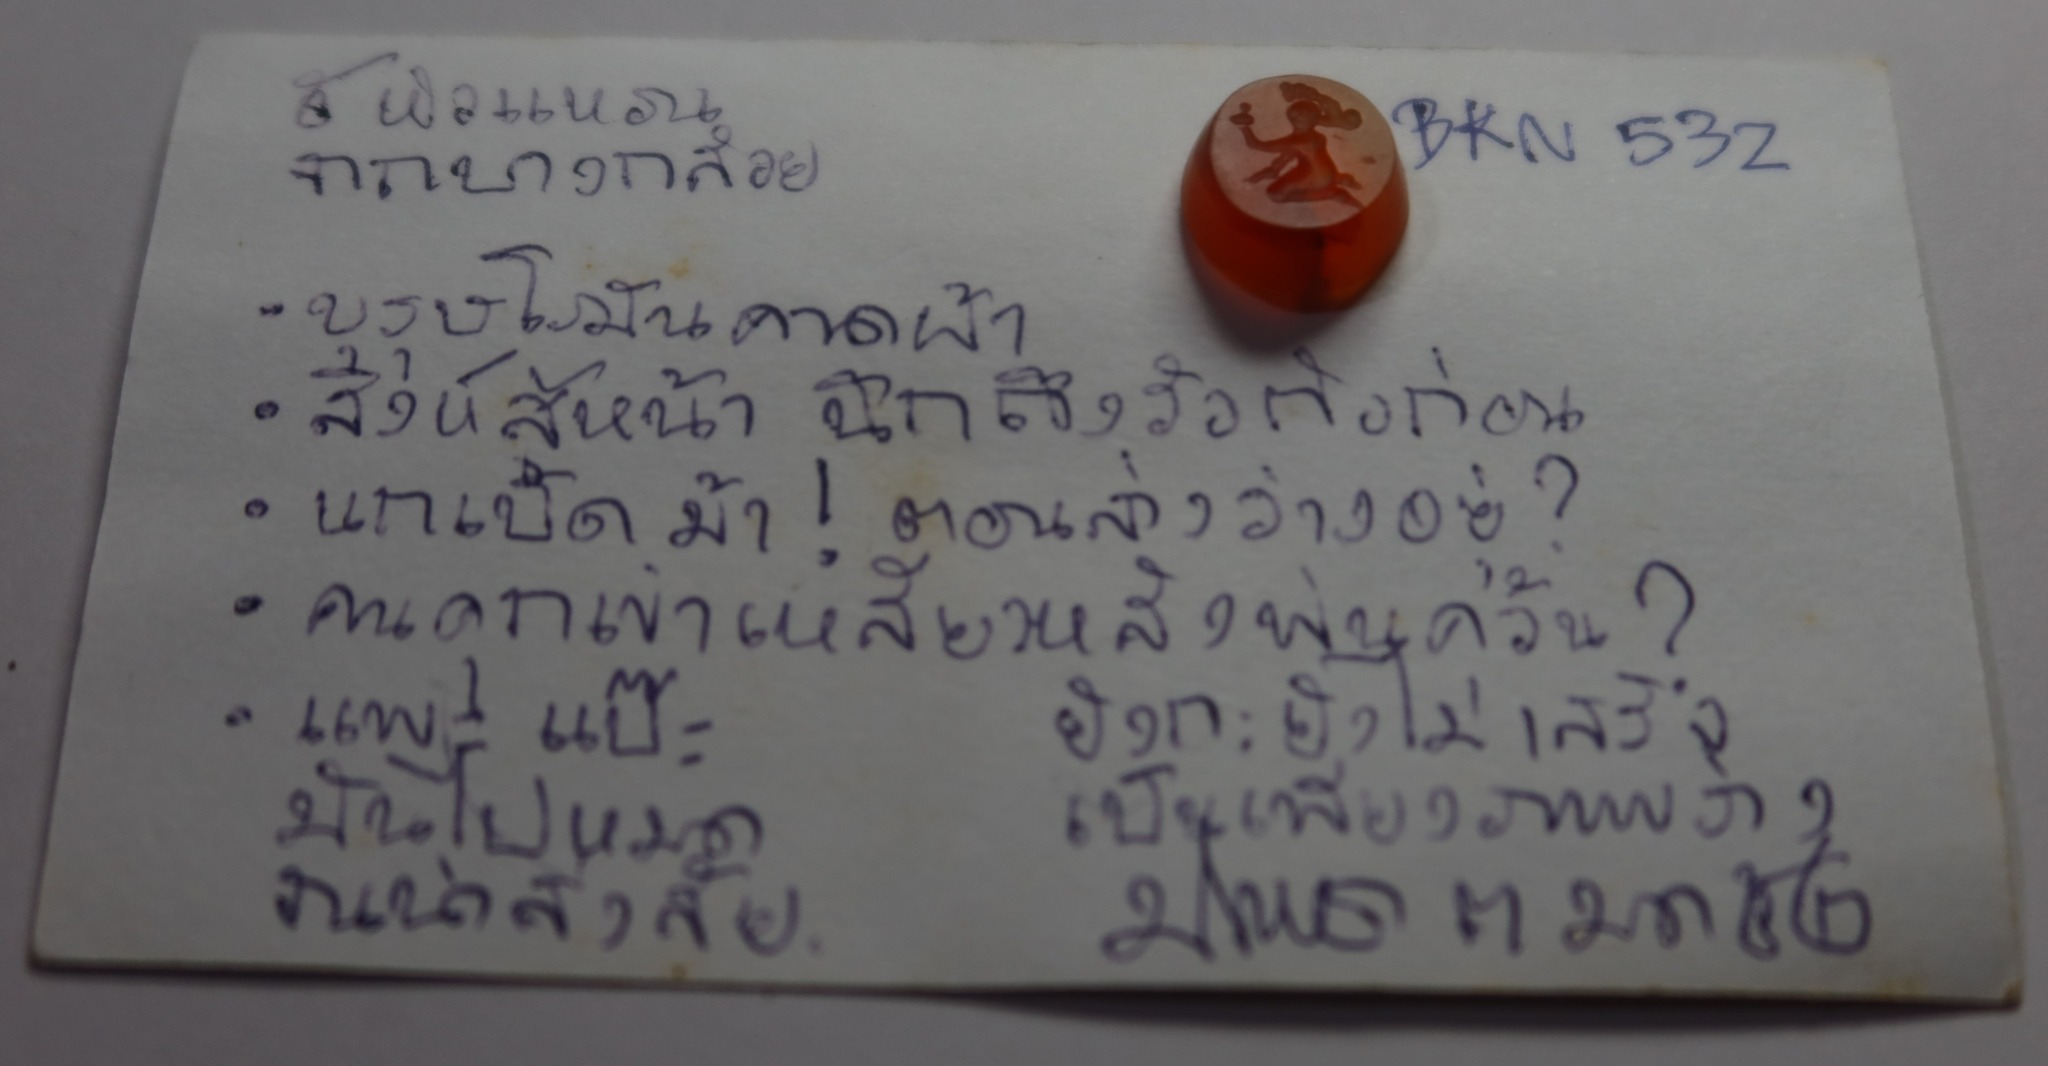 หัวแหวน
จากบางกล้วย
BKN 532
· บุรุษโรมันคาดผ้า
· สิงห์สู้หน้า นึกถึงวัวก่อน
· นกเป็ด ม้า! ตอนล่างว่างอยู่?
· คนคุกเข่าเหลียวหลังพ่นควัน?
· แพะ! แป๊ะ
มันไปหมด
จนน่าสงสัย.
ยังกะยังไม่เสร็จ
เป็นเพียงภาพร่าง